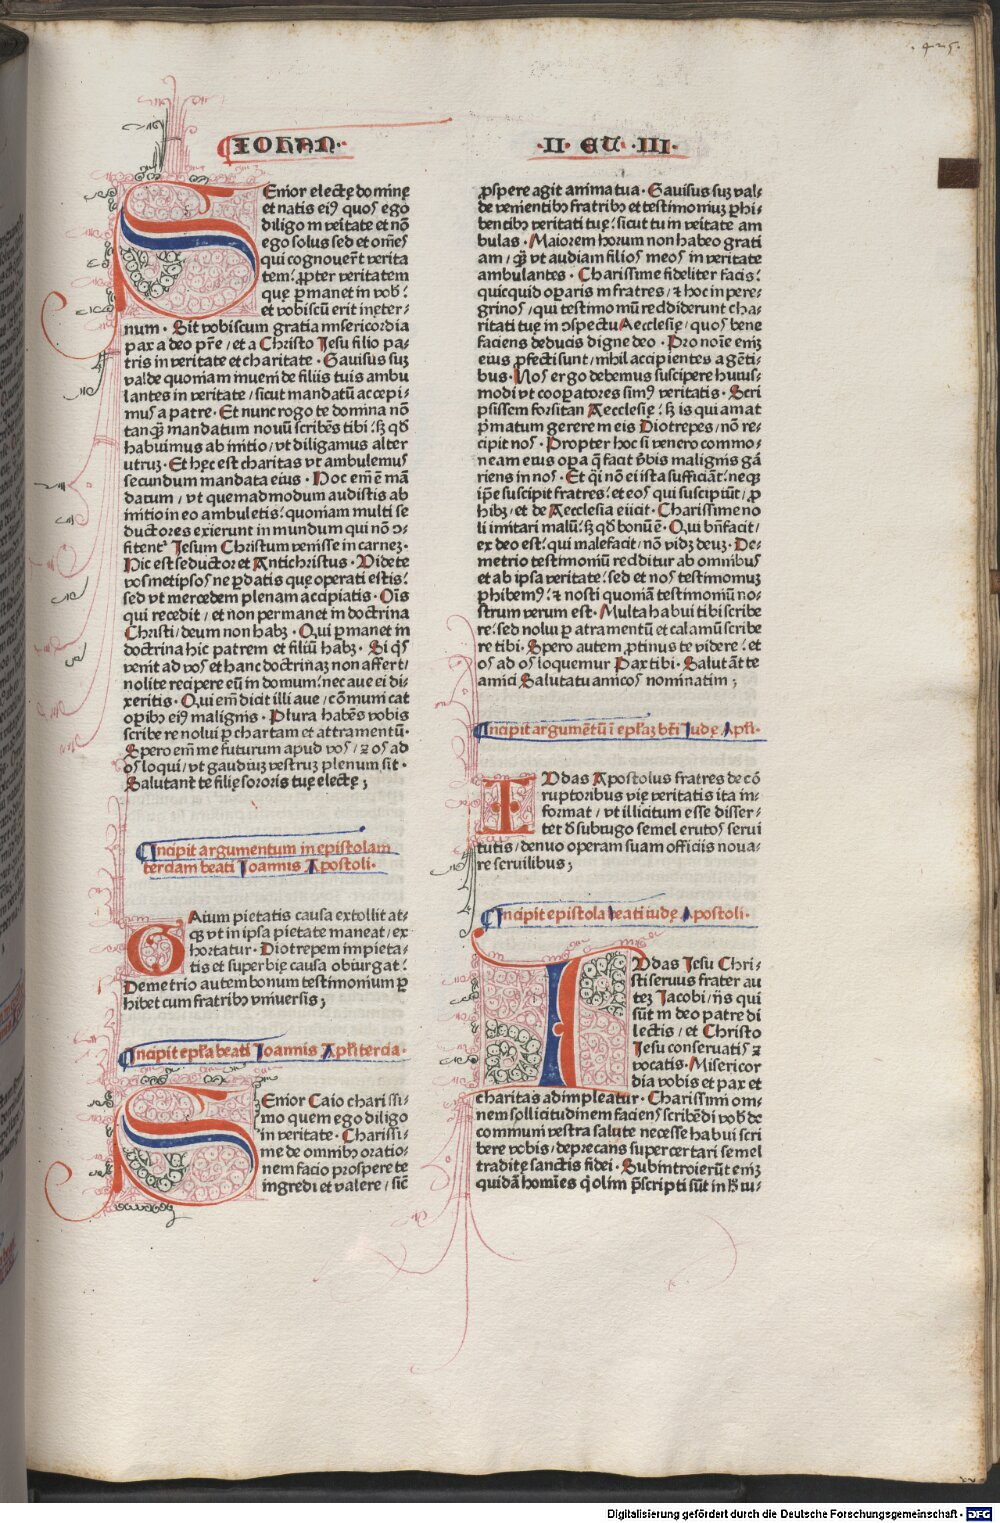 ·425·
IOHAN·
·II· ET ·III·
SEnior electę dominę
et natis eiꝰ quos ego
diligo in v̄itate et nō
ego solus sed et om̄es
qui cognouer̄t verita
tem: ꝓpter veritatem
que ꝑmanet in vob̄:
et vobiscū erit in ęter⸗
num · Sit vobiscum gratia misericordia
pax a deo pr̄e / et a Christo Jesu filio pa⸗
tris in veritate et charitate · Gauisus suꝫ
valde quoniam inueni de filiis tuis ambu
lantes in veritate / sicut mandatū accepi⸗
mus a patre · Et nunc rogo te domina nō
tanqꝫ mandatum nouū scribēs tibi: sꝫ qd̄
habuimus ab initio / vt diligamus alter
utruꝫ · Et hęc est charitas vt ambulemus
secundum mandata eius · Hoc em̄ ē mā
datum / vt quemadmodum audistis ab
initio in eo ambuletis: quoniam multi se
ductores exierunt in mundum qui nō ↄ⸗
fitent᷑ Jesum Christum venisse in carneꝫ ·
Hic est seductor et Antichristus · Videte
vosmetipsos ne ꝑdatis que operati estis:
sed vt mercedem plenam accipiatis · Oīs
qui recedit / et non permanet in doctrina
Christi / deum non habꝫ · Qui ꝑmanet in
doctrina hic patrem et filiū habꝫ · Si qͥs
venit ad vos et hanc doctrinaꝫ non affert /
nolite recipere eū in domum: nec aue ei di⸗
xeritis · Qui em̄ dicit illi aue / cōmunicat
oꝑibꝰ eiꝰ malignis · Plura habēs vobis
scribere nolui ꝑ chartam et attramentū·
Spero em̄ me futurum apud vos / ⁊ os ad
os loqui / vt gaudiuꝫ vestruꝫ plenum sit ·
Salutant te filię sororis tuę electę ;
Incipit argumentum in epistolam
terciam beati Joannis Apostoli·
GAium pietatis causa extollit at⸗
qꝫ vt in ipsa pietate maneat / ex
hortatur · Diotrepem impieta⸗
tis et superbię causa obiurgat:
Demetrio autem bonum testimonium ꝑ
hibet cum fratribꝰ vniuersis ;
Incipit epl̄a beati Joannis Apl̄i tercia·
SEnior Caio charissi⸗
mo quem ego diligo
in veritate · Charissi⸗
me de omnibꝰ oratio⸗
nem facio prospere te
ingredi et valere / sic̄
ꝓspere agit anima tua · Gauisus suꝫ val⸗
de venientibꝰ fratribꝰ et testimoniuꝫ ꝑhi⸗
bentibꝰ veritati tuę: sicut tu in v̄eitate am
bulas · Maiorem horum non habeo grati
am / qꝫ̄ vt audiam filios meos in veritate
ambulantes · Charissime fideliter facis:
quicquid oꝑaris in fratres / ⁊ hoc in pere⸗
grinos / qui testimoniū reddiderunt cha⸗
ritati tuę in ↄspectu Aecclesię / quos bene
faciens deducis digne deo · Pro noīe em̄
eius ꝓfecti sunt / nihil accipientes a gēti⸗
bus · Nos ergo debemus suscipere huius⸗
modi vt cooꝑatores simꝰ veritatis · Scri
psissem forsitan Aecclesię: sꝫ is qui amat
p̄matum gerere in eis Diotrepes / nō re⸗
cipit nos · Propter hoc si venero commo⸗
neam eius oꝑa q̄ facit v̄bis malignis gar
riens in nos · Et qͥ nō ei ista sufficiāt: neqꝫ
ip̄e suscipit fratres: et eos qui suscipiūt / ꝓ
hibꝫ / et de Aecclesia eiicit · Charissime no
li imitari malū: sꝫ qd̄ bonū ē · Qui bn̄facit /
ex deo est: qui malefacit / nō vidꝫ deuꝫ · De⸗
metrio testimoniū redditur ab omnibus
et ab ipsa veritate: sed et nos testimoniuꝫ
ꝑhibemꝰ: ⁊ nosti quoniā testimoniū no⸗
strum verum est · Multa habui tibi scribe
re: sed nolui ꝑ atramentū et calamū scribe
re tibi · Spero autem ꝓtinus te videre: et
os ad os loquemur Pax tibi · Salutāt te
amici Salutatu amicos nominatim ;
Incipit argumētū ī epl̄aꝫ bt̄i Judę Apl̄i·
IVdas Apostolus fratres de cō
ruptoribus vię veritatis ita in⸗
format / vt illicitum esse disser⸗
tet d̄ sub iugo semel erutos serui
tutis / denuo operam suam officiis noua⸗
re seruilibus ;
Incipit epistola beati iudę Apostoli·
IVdas Jesu Chri⸗
sti seruus frater au
teꝫ Jacobi / hīs qui
sūt in deo patre di
lectis / et Christo
Jesu conseruatis ⁊
vocatis · Misericor
dia vobis et pax et
charitas adimpleatur · Charissimi om⸗
nem sollicitudinem faciens scribēdi vob̄ de
communi vestra salute necesse habui scri
bere vobis / deprecans supercertari semel
traditę sanctis fidei · Subintroierūt eniꝫ
quidā homīes qͥ olim p̄scripti sūt in h̄ iu⸗
Digitalisierung gefördert durch die Deutsche Forschungsgemeinschaft - DFG